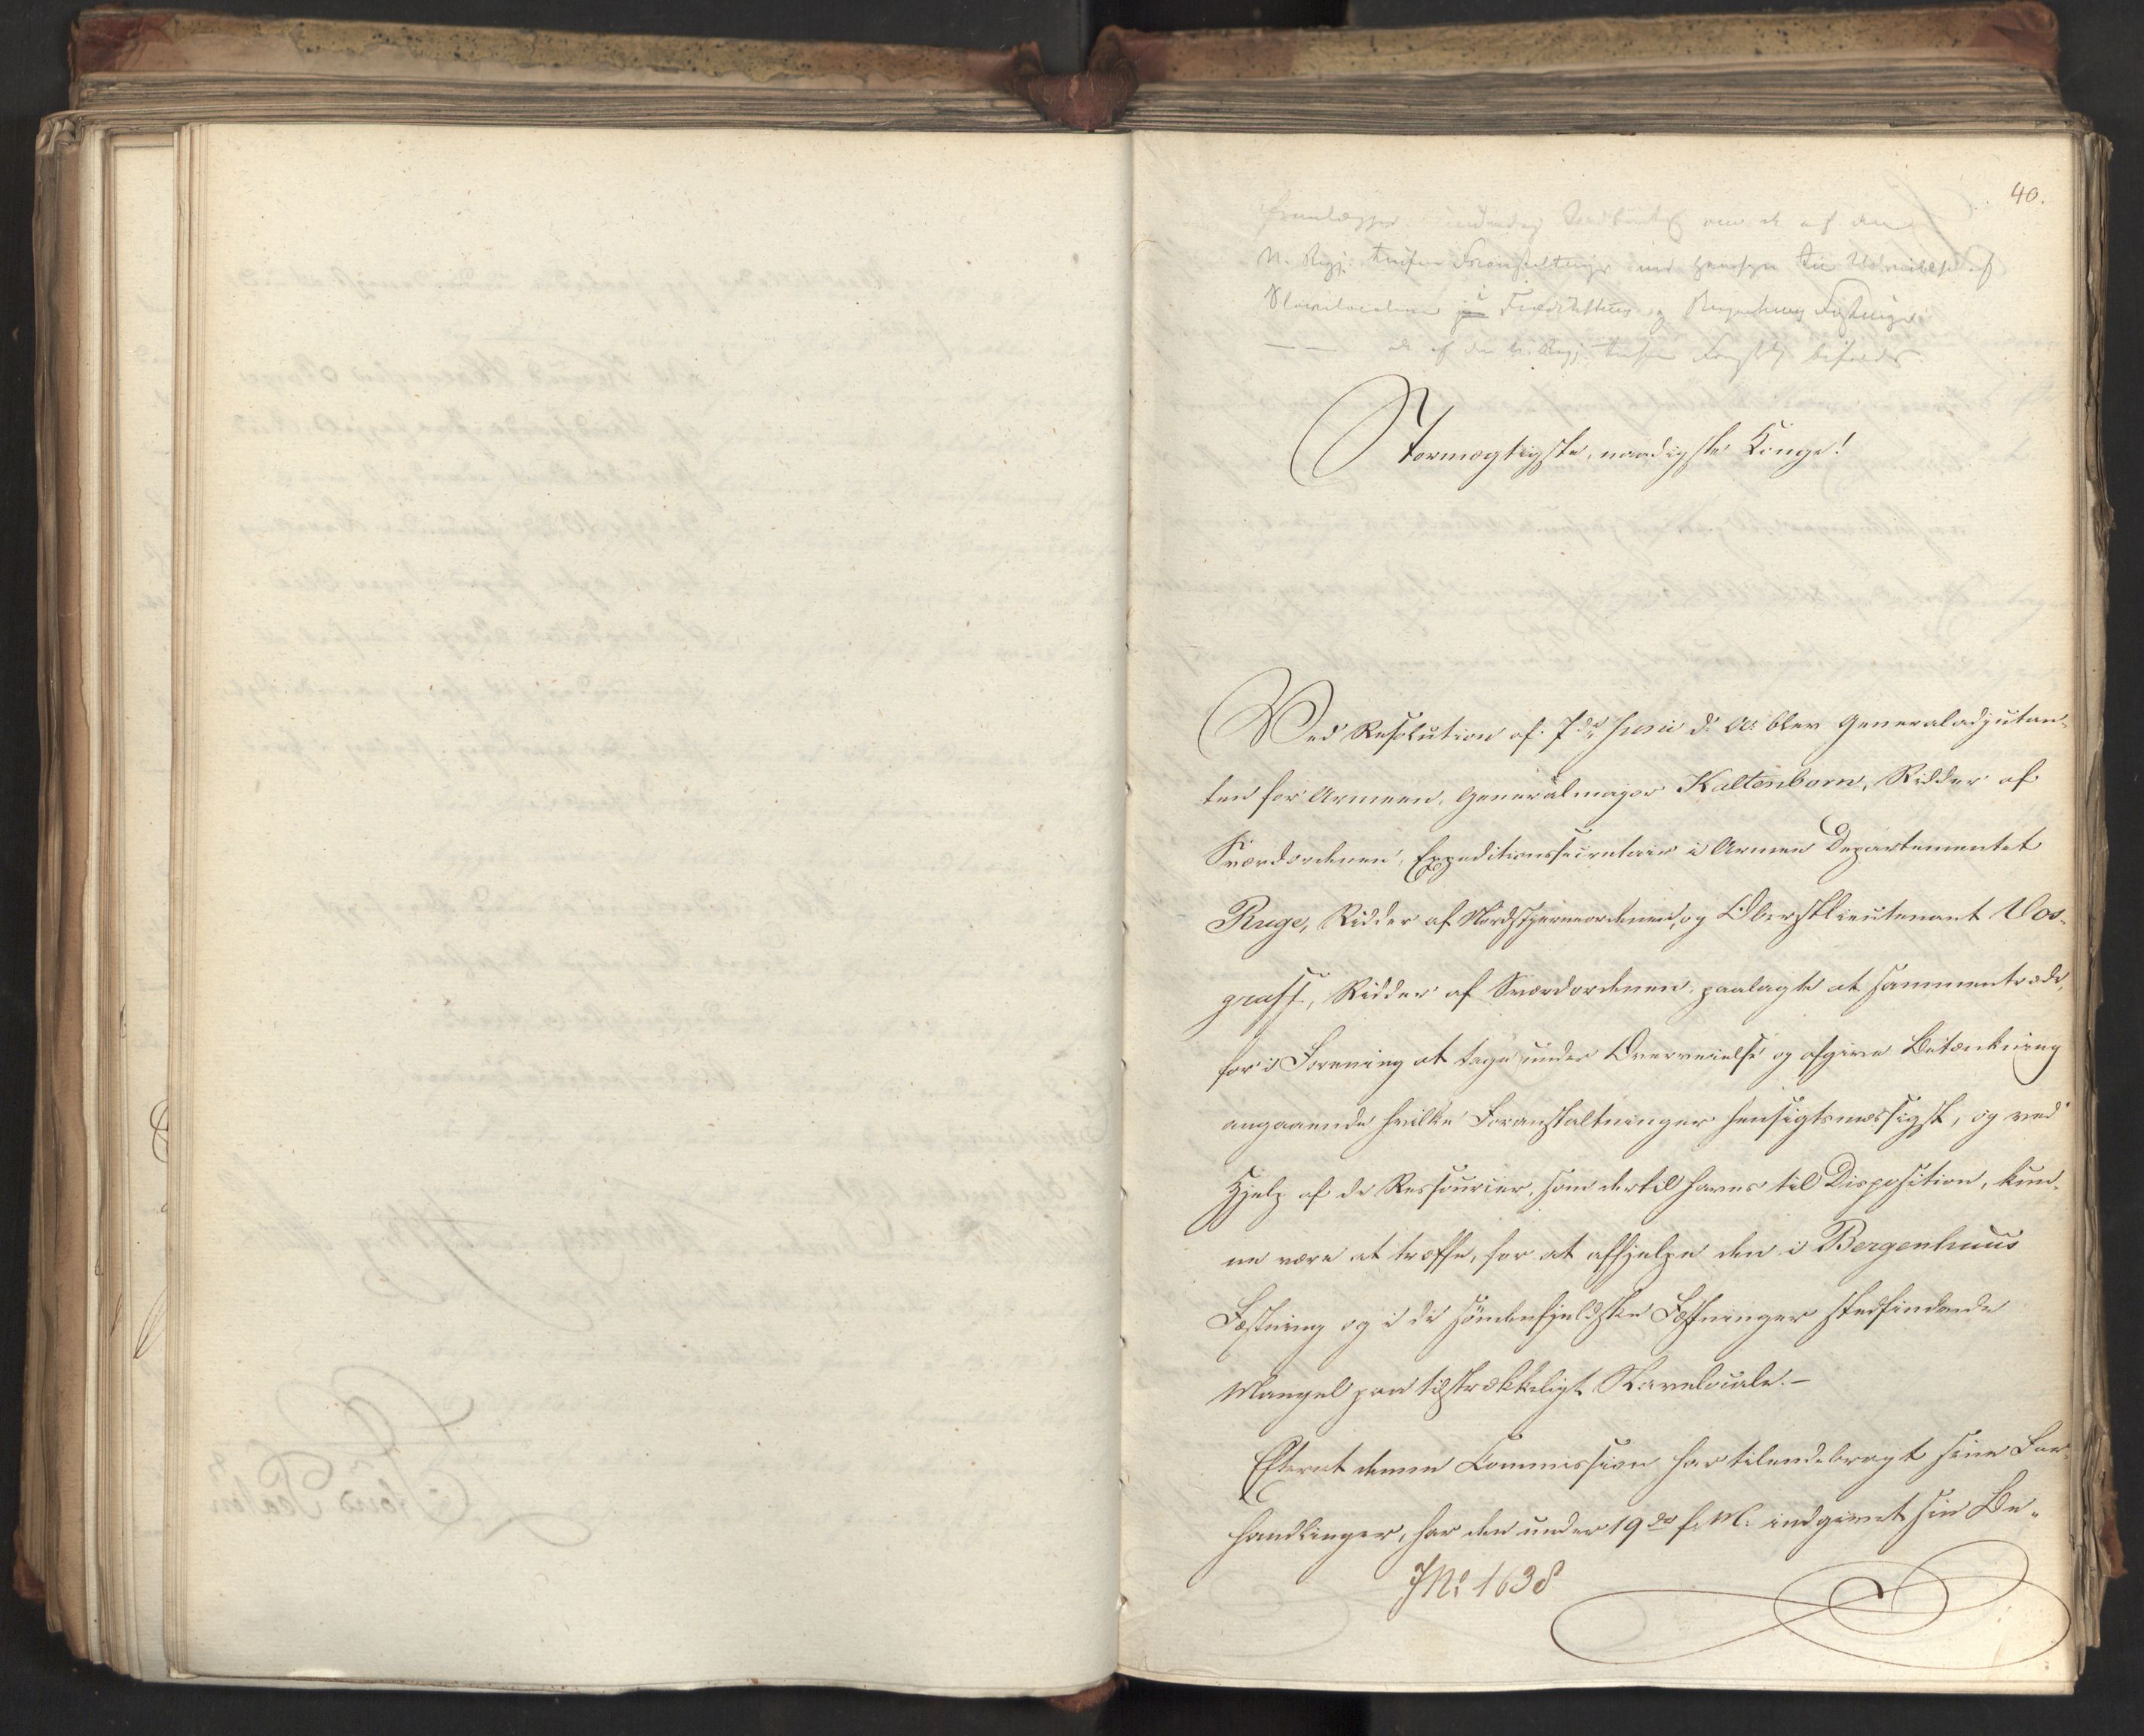 40.
N. Regj. trufne Foranstaltninger med Hensyn til Udvidelse af
Slavelocalerne i Fredrikshus og Bergenhuus Fæstninger
at af den N. Regj. trufne bifaldes
Stormægtigste, naadigste Konge!
Ved Resolution af 7de Juni d. A. blev Generaladjutan-
ten for Armeen, Generalmajor Kaltenborn, Ridder af
Sværdordenen, Expeditionssecretair i Armee Departementet
Ruge, Ridder af Nordstjerneordenen, og Oberstlieutenant Vos-
graff, Ridder af Sværdordenen, paalagte at sammentræde,
for i Forening at tage under Overveielse og afgive Betænkning
angaaende hvilke Foranstaltninger hensigtsmæssigst, og ved
Hjelp af de Ressourcer, som dertil haves til Disposition, kun-
ne være at træffe, for at afhjelpe den i Bergenhuus
Fæstning og i de søndenfjeldske Fæstninger stedfindende
Mangel paa tilstrækkeligt Slavelocale.-
Efterat denne Commission har tilendebragt sine For-
handlinger, har den under 19de f. M. indgivet sin Be-
JNo 1638